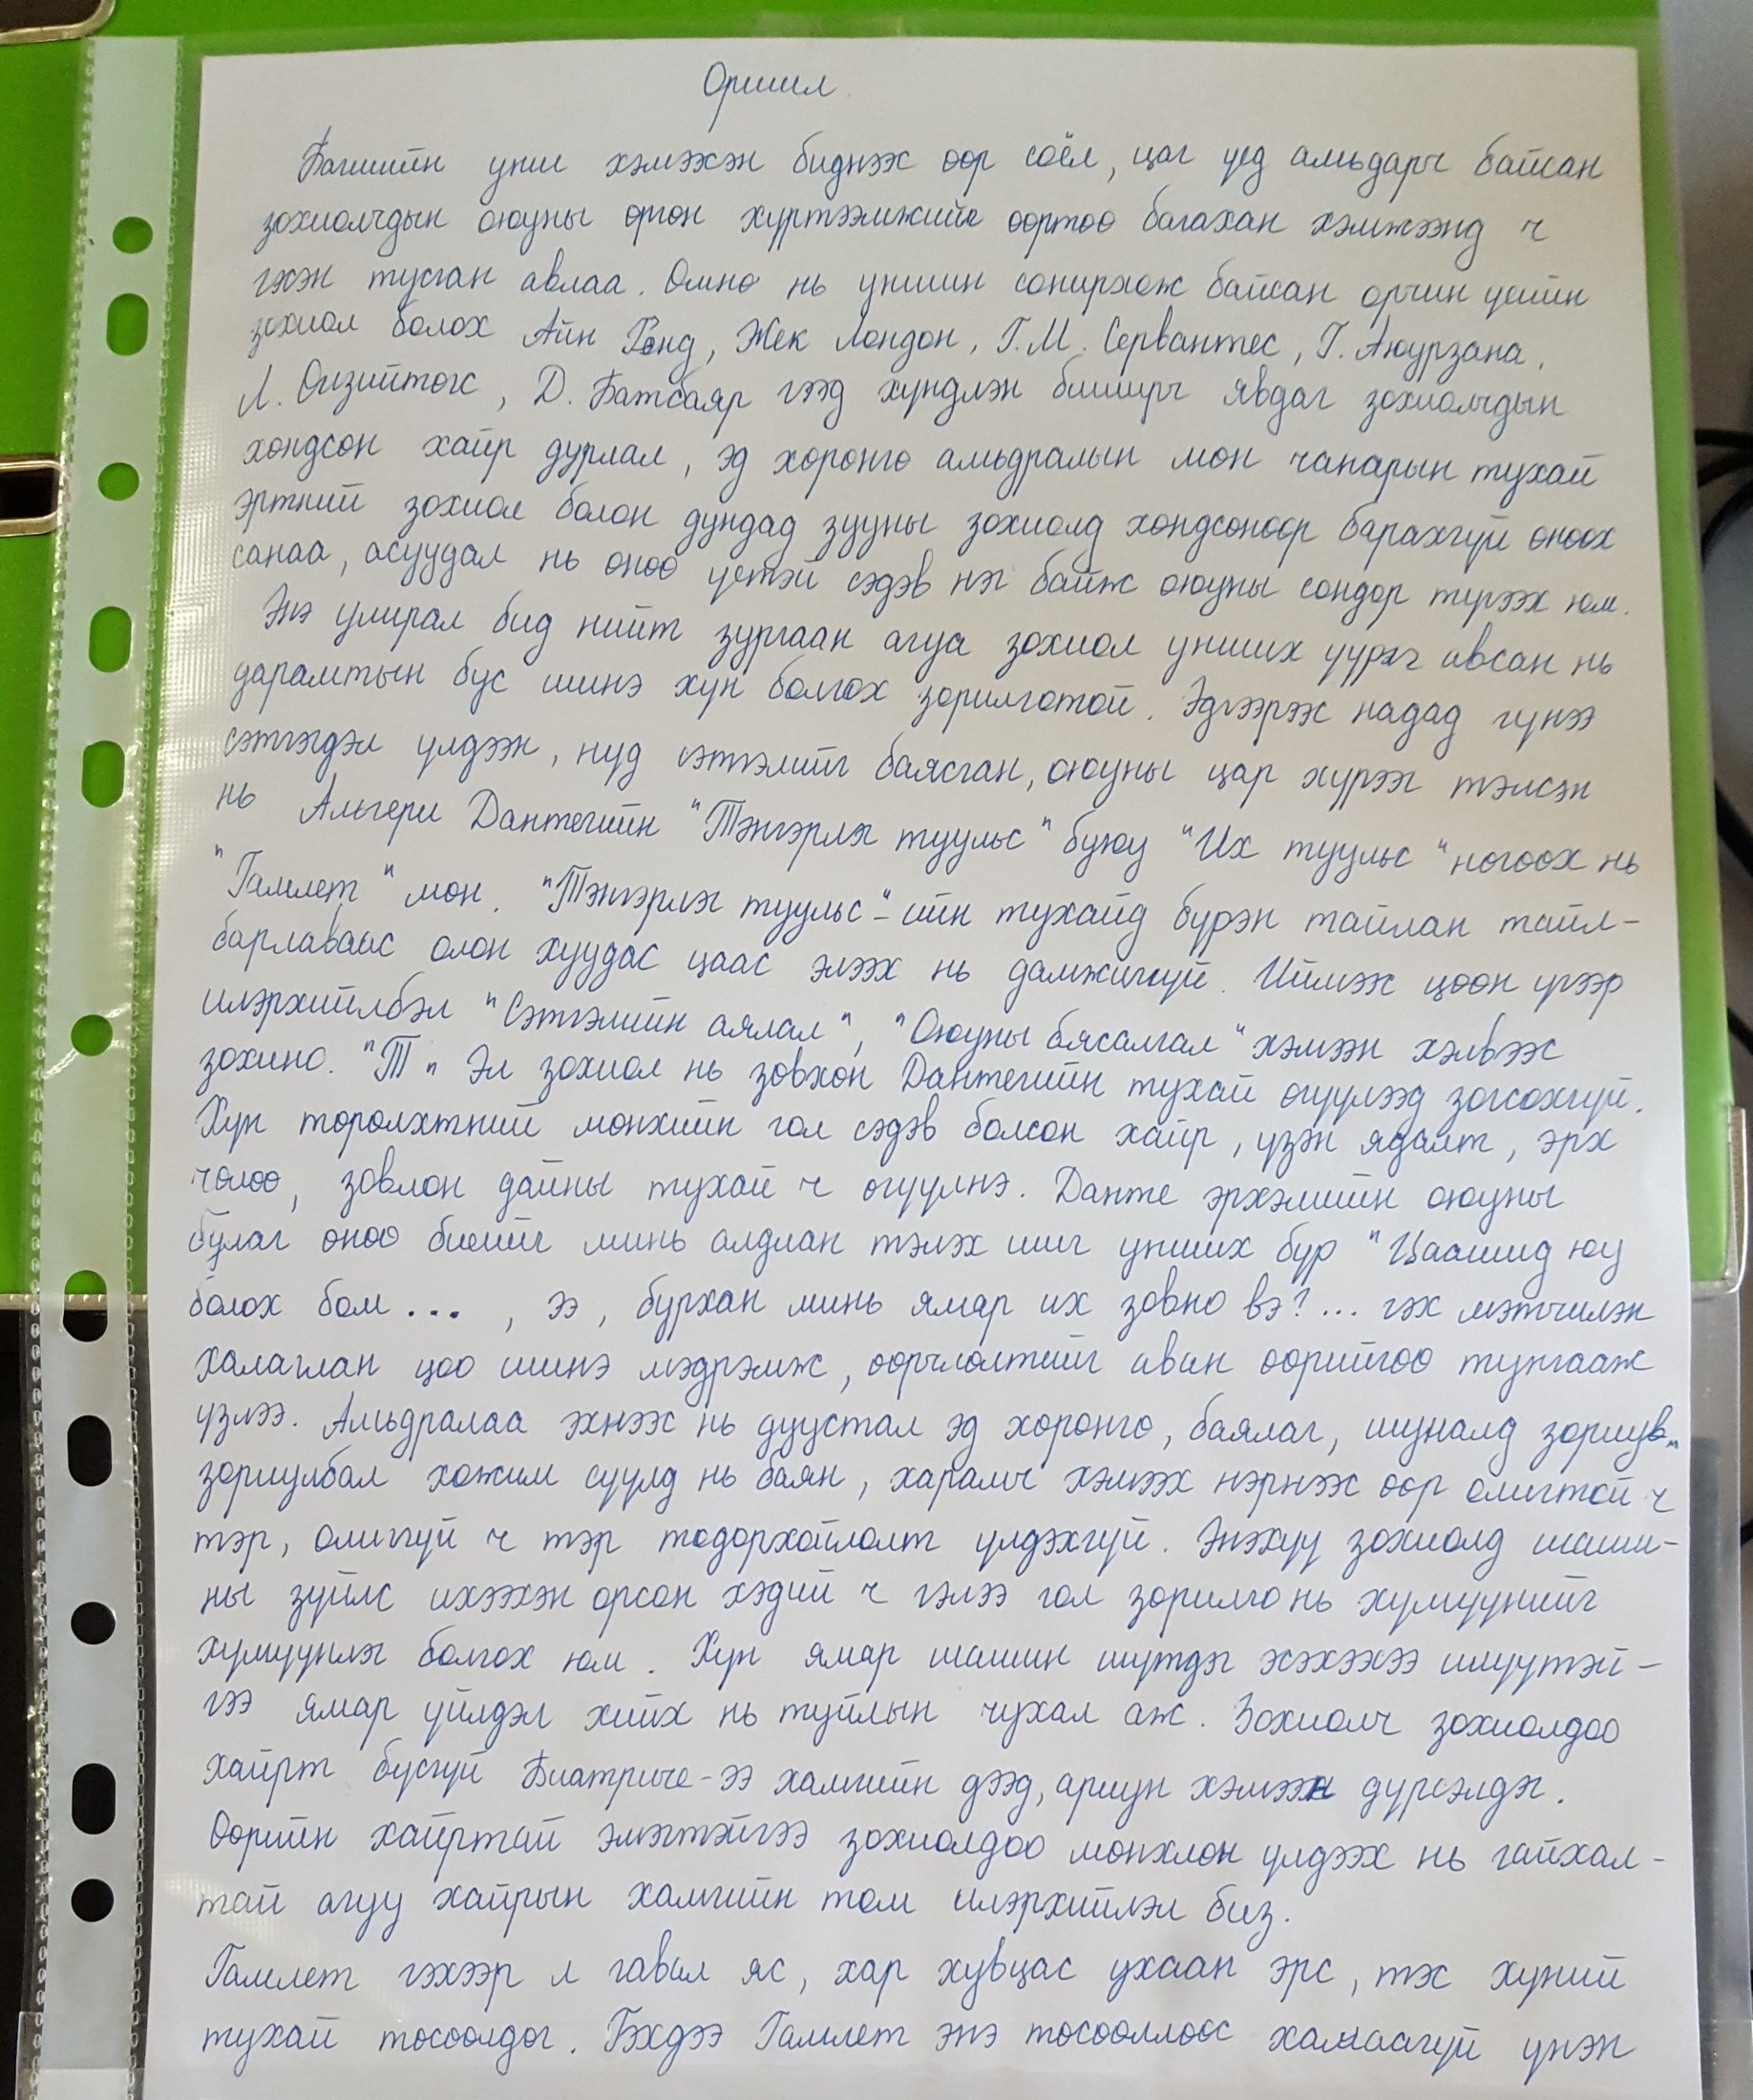 Оршил
Багшийн унш хэмээхэн биднээс өөр соёл, цаг үед амьдарч байсан
зохиолчдын оюуны өргөн хүртээмжийг өөртөө багахан хэмжээнд ч
гэсэн тусган авлаа. Өмнө нь уншин сонирхож байсан орчин үеийн
зохиол болох Айн Рэнд, Жек Лондон, Г.М. Сервантес, Г. Аюурзана,
Л. Өлзийтөгс, Д. Батбаяр гээд хүндлэн биширч явдаг зохиолчдын
хөндсөн хайр дурлал, эд хөрөнгө амьдралын мөн чанарын тухай
эртний зохиол болон дундад зууны зохиолд хөндсөнөөр барахгүй өнөөх
санаа, асуудал нь өнөө үетэй сэдэв нэг байж оюуны сондор түгээх юм.
Энэ улирал бид нийт зургаан агуа зохиол унших үүрэг авсан нь
дарамтын бус шинэ хүн болгох зорилготой. Эдгээрээс надад гүнээ
сэтгэгдэл үлдээн, нүд сэтгэлийг баясган, оюуны цар хүрээг тэлсэн
нь Альгери Дантегийн "Тэнгэрлэг туульс" буюу "Их туульс" нөгөөх нь
"Гамлет" мөн. "Тэнгэрлэг туульс"-ийн тухайд бүрэн тайлан тайл-
барлаваас олон хуудас цаас элээх нь дамжиггүй. Иймээс цөөн үгээр
илэрхийлбэл "Сэтгэлийн аялал", "Оюуны бясалгал" хэмээн хэлвээс
зохино. "Т" Эл зохиол нь зөвхөн Дантегийн тухай өгүүлээд зогсохгүй.
Хүн төрөлхтний мөнхийн гол сэдэв болсон хайр, үзэн ядалт, эрх
чөлөө, зовлон дайны тухай ч өгүүлнэ. Данте эрхэмийн оюуны
булаг өнөө биеийг минь алдлан тэлэх шиг унших бүр "Цаашид юу
болох бол ... , ээ, бурхан минь ямар их зовно вэ? ... гэх мэтчилэн
халаглан цоо шинэ мэдрэмж, өөрчлөлтийг аван өөрийгөө тунгааж
үзлээ. Амьдралаа эхнээс нь дуустал эд хөрөнгө, баялаг, шуналд зориув
зориулбал хожим сүүлд нь баян, харамч хэмээх нэрнээс өөр олигтой ч
тэр, олиггүй ч тэр тодорхойлолт үлдэхгүй. Энэхүү зохиолд шаши-
ны зүйлс ихээхэн орсон хэдий ч гэлээ гол зорилго нь хүмүүнийг
хүмүүнлэг болгох юм. Хүн ямар шашин шүтдэг эсэхээсээ илүүтэй-
гээ ямар үйлдэл хийх нь туйлын чухал аж. Зохиолч зохиолдоо
хайрт бүсгүй Биатриче-ээ хамгийн дээд, ариун хэмээн дүрсэлдэг.
Өөрийн хайртай эмэгтэйгээ зохиолдоо мөнхлөн үлдээх нь гайхал-
тай агуу хайрын хамгийн том илэрхийлэл биз.
Гамлет гэхээр л гавал яс, хар хувцас ухаан эрс, тэс хүний
тухай төсөөлдөг. Гэхдээ Гамлет энэ төсөөллөөс хамаагүй үнэн